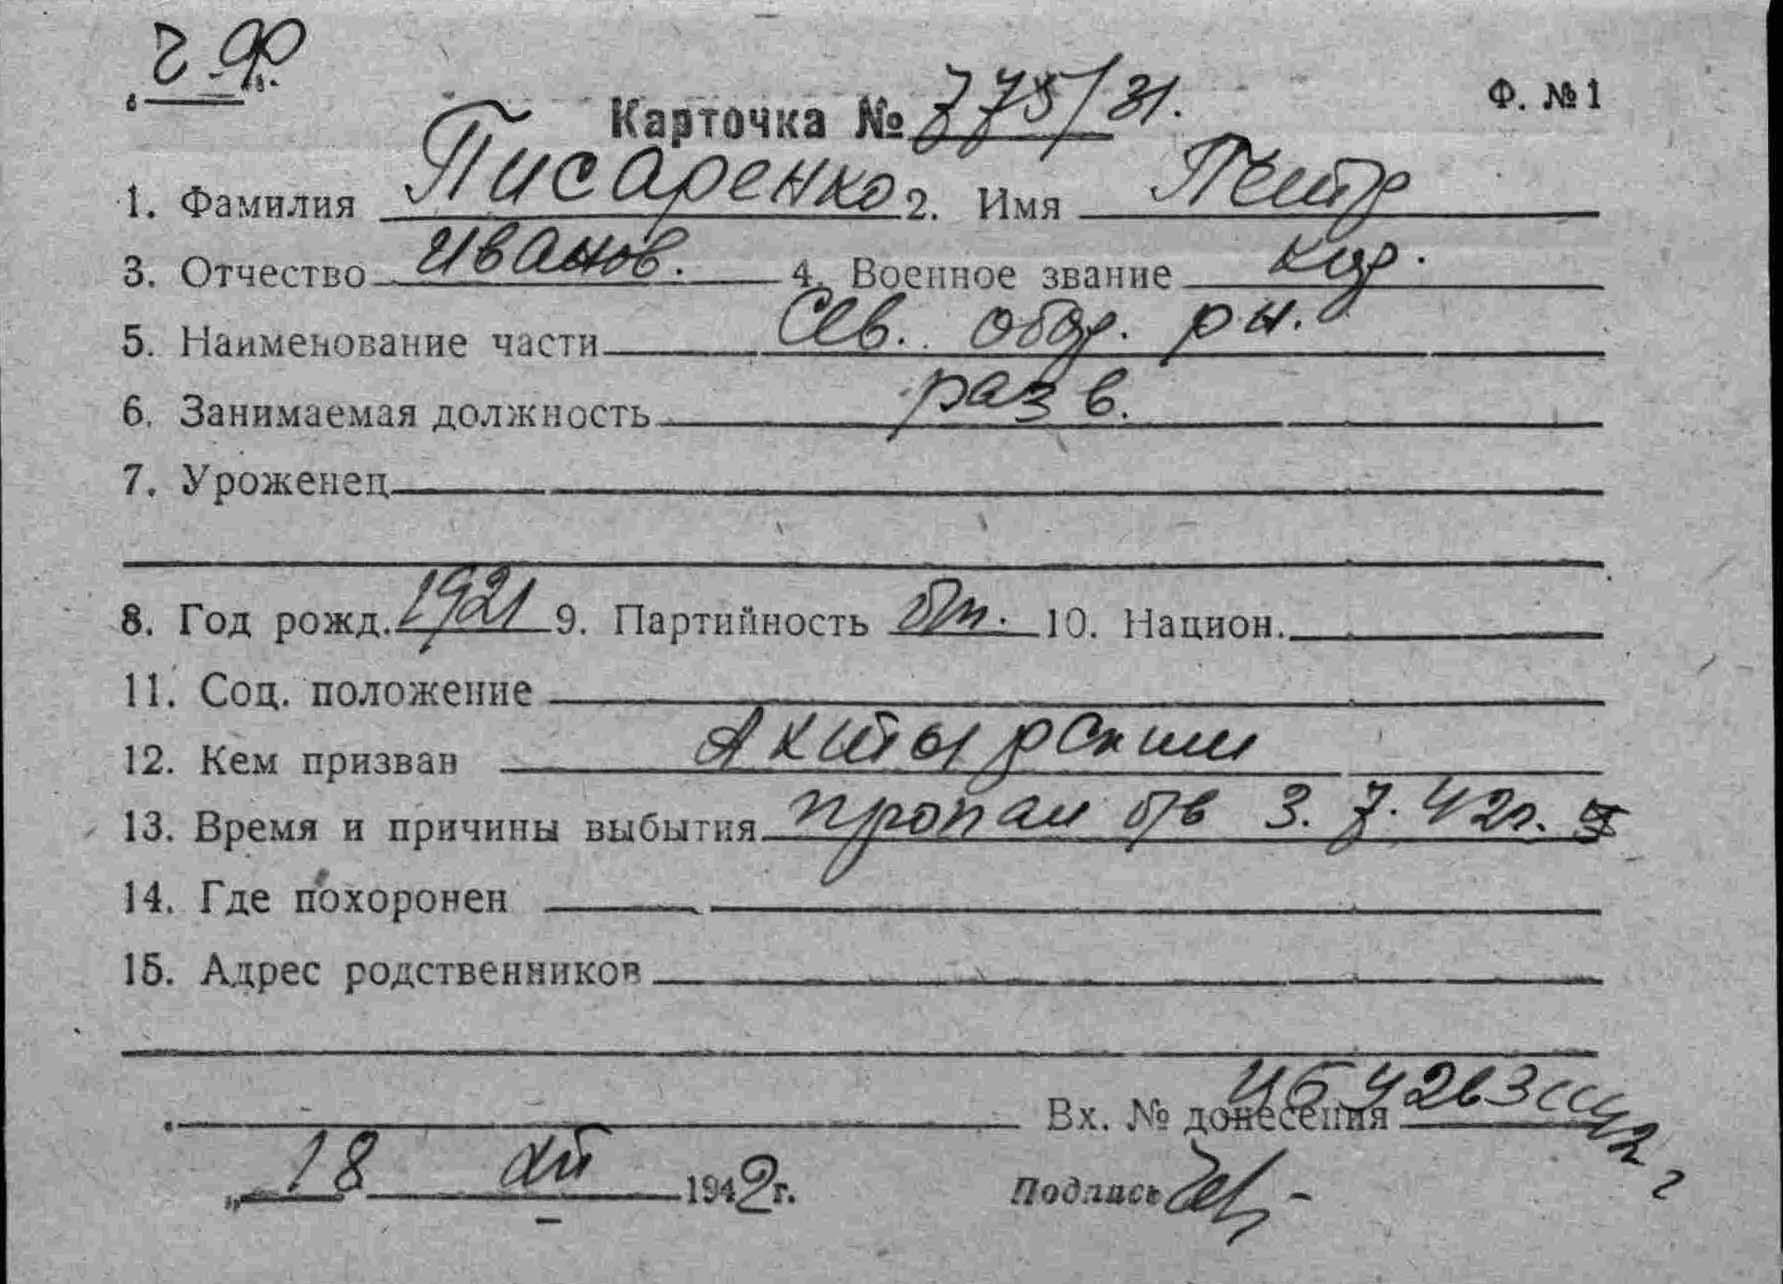 Ч Ф
Карточка № 775/31. Ф. №1
1. Фамилия Писаренко 2. Имя Петр
3. Отчество Иванов. 4. Военное звание кр.
5. Наименование части Сев. обор. рн.
6. Занимаемая должность разв.
7. Уроженец
8. Год рожд. 1921 9. Партийность бп. 10. Национ.
11. Соц. положение
12. Кем призван Ахтырским
13. Время и причины выбытия пропал б/в 3.7.42г.
14. Где похоронен
15. Адрес родственников
Вх. № донесения
„ 18 XII 1942г. Подпись